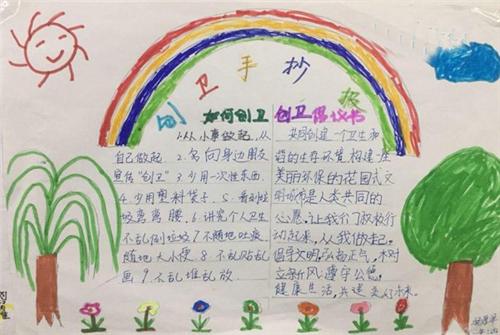 创卫手抄报
如何创卫
1.从小事做起,从
自己做起 2.多向身边朋友
宣传“创卫” 3.少用一次性东西.
4.少用塑料袋子. 5.看到垃
圾弯弯腰 6.讲究个人卫生
不乱倒垃圾 7.不随地吐痰
随地大小便 8.不乱贴乱
画 9.不乱堆乱放
创卫倡议书
共同创建一个卫生和
谐的生存环境,构建庄
美丽环保的花园式文
明城市是人类共同的
心愿,让我们放放行
动起来,从我做起.
倡导文明,弘扬正气,木对
立新风,遵守公德,
健康生活,共建美好未来.